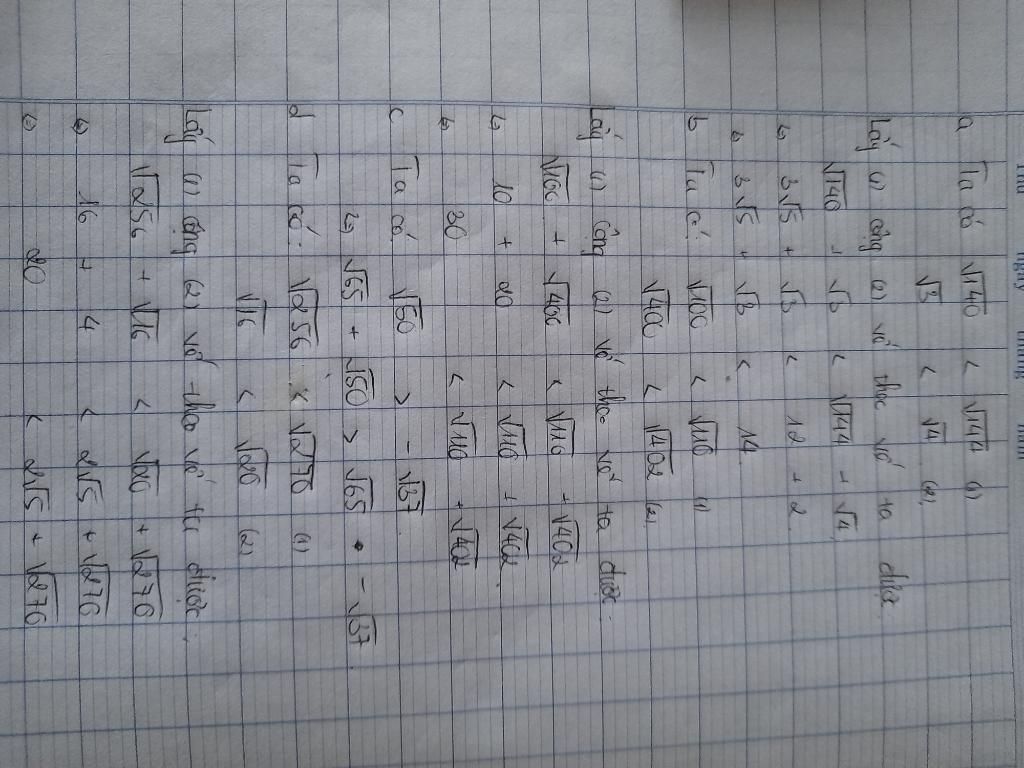 a Ta có √140 < √144 (1)
√3 < √4 (2)
Lấy (1) cộng (2) vế theo vế ta được
√140 + √3 < √144 + √4
⇔ 3√5 + √3 < 12 + 2
⇔ 3√5 + √3 < 14
b Ta có: √100 < √116 (1)
√400 < √402 (2)
Lấy (1) cộng (2) vế theo vế ta được:
√100 + √400 < √116 + √402
⇔ 10 + 20 < √116 + √402
⇔ 30 < √116 + √402
c Ta có √50 > - √37
⇔ √65 + √50 > √65 - √37
d Ta có: √256 < √276 (1)
√16 < √20 (2)
Lấy (1) cộng (2) vế theo vế ta được:
√256 + √16 < √20 + √276
⇔ 16 + 4 < 2√5 + √276
⇔ 20 < 2√5 + √276